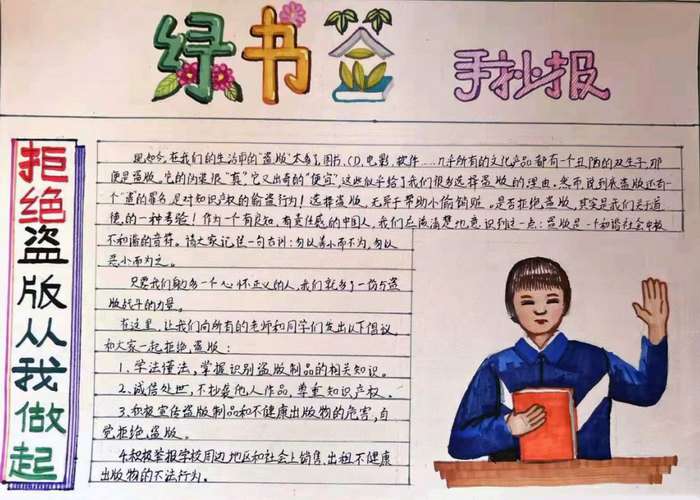 绿书签 手抄报
拒绝盗版从我做起
现如今,在我们的生活中的“盗版”太多了,图书、CD、电影、软件……几乎所有的文化产品都有一个丑陋的双生子,那
便是盗版。它的伪装很“真”,它又出奇的“便宜”,这些似乎给了我们很多选择盗版的理由。然而,说到底盗版还有一
个“盗”的罪名,是对知识产权的偷盗行为!选择盗版,无异于帮助小偷销赃。是否拒绝盗版,其实是我们关于道
德的一种考验!作为一个有良知,有责任感的中国人,我们应该清楚地意识到这一点:盗版是一个和谐社会中极
不和谐的音符。请大家记住一句古训:勿以善小而不为,勿以
恶小而为之。
只要我们身边多一个心怀正义的人,我们就多了一份与盗
版战斗的力量。
在这里,让我们向所有的老师和同学们发出以下倡议,
和大家一起拒绝盗版:
1.学法懂法,掌握识别盗版制品的相关知识。
2.诚信处世,不抄袭他人作品,尊重知识产权。
3.积极宣传盗版制品和不健康出版物的危害,自
觉拒绝盗版。
4.积极举报学校周边地区和社会上销售、出租不健康
出版物的不法行为。